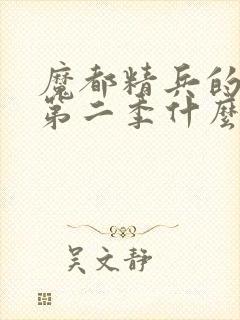 魔都精兵的
第二季什麼
吴文静